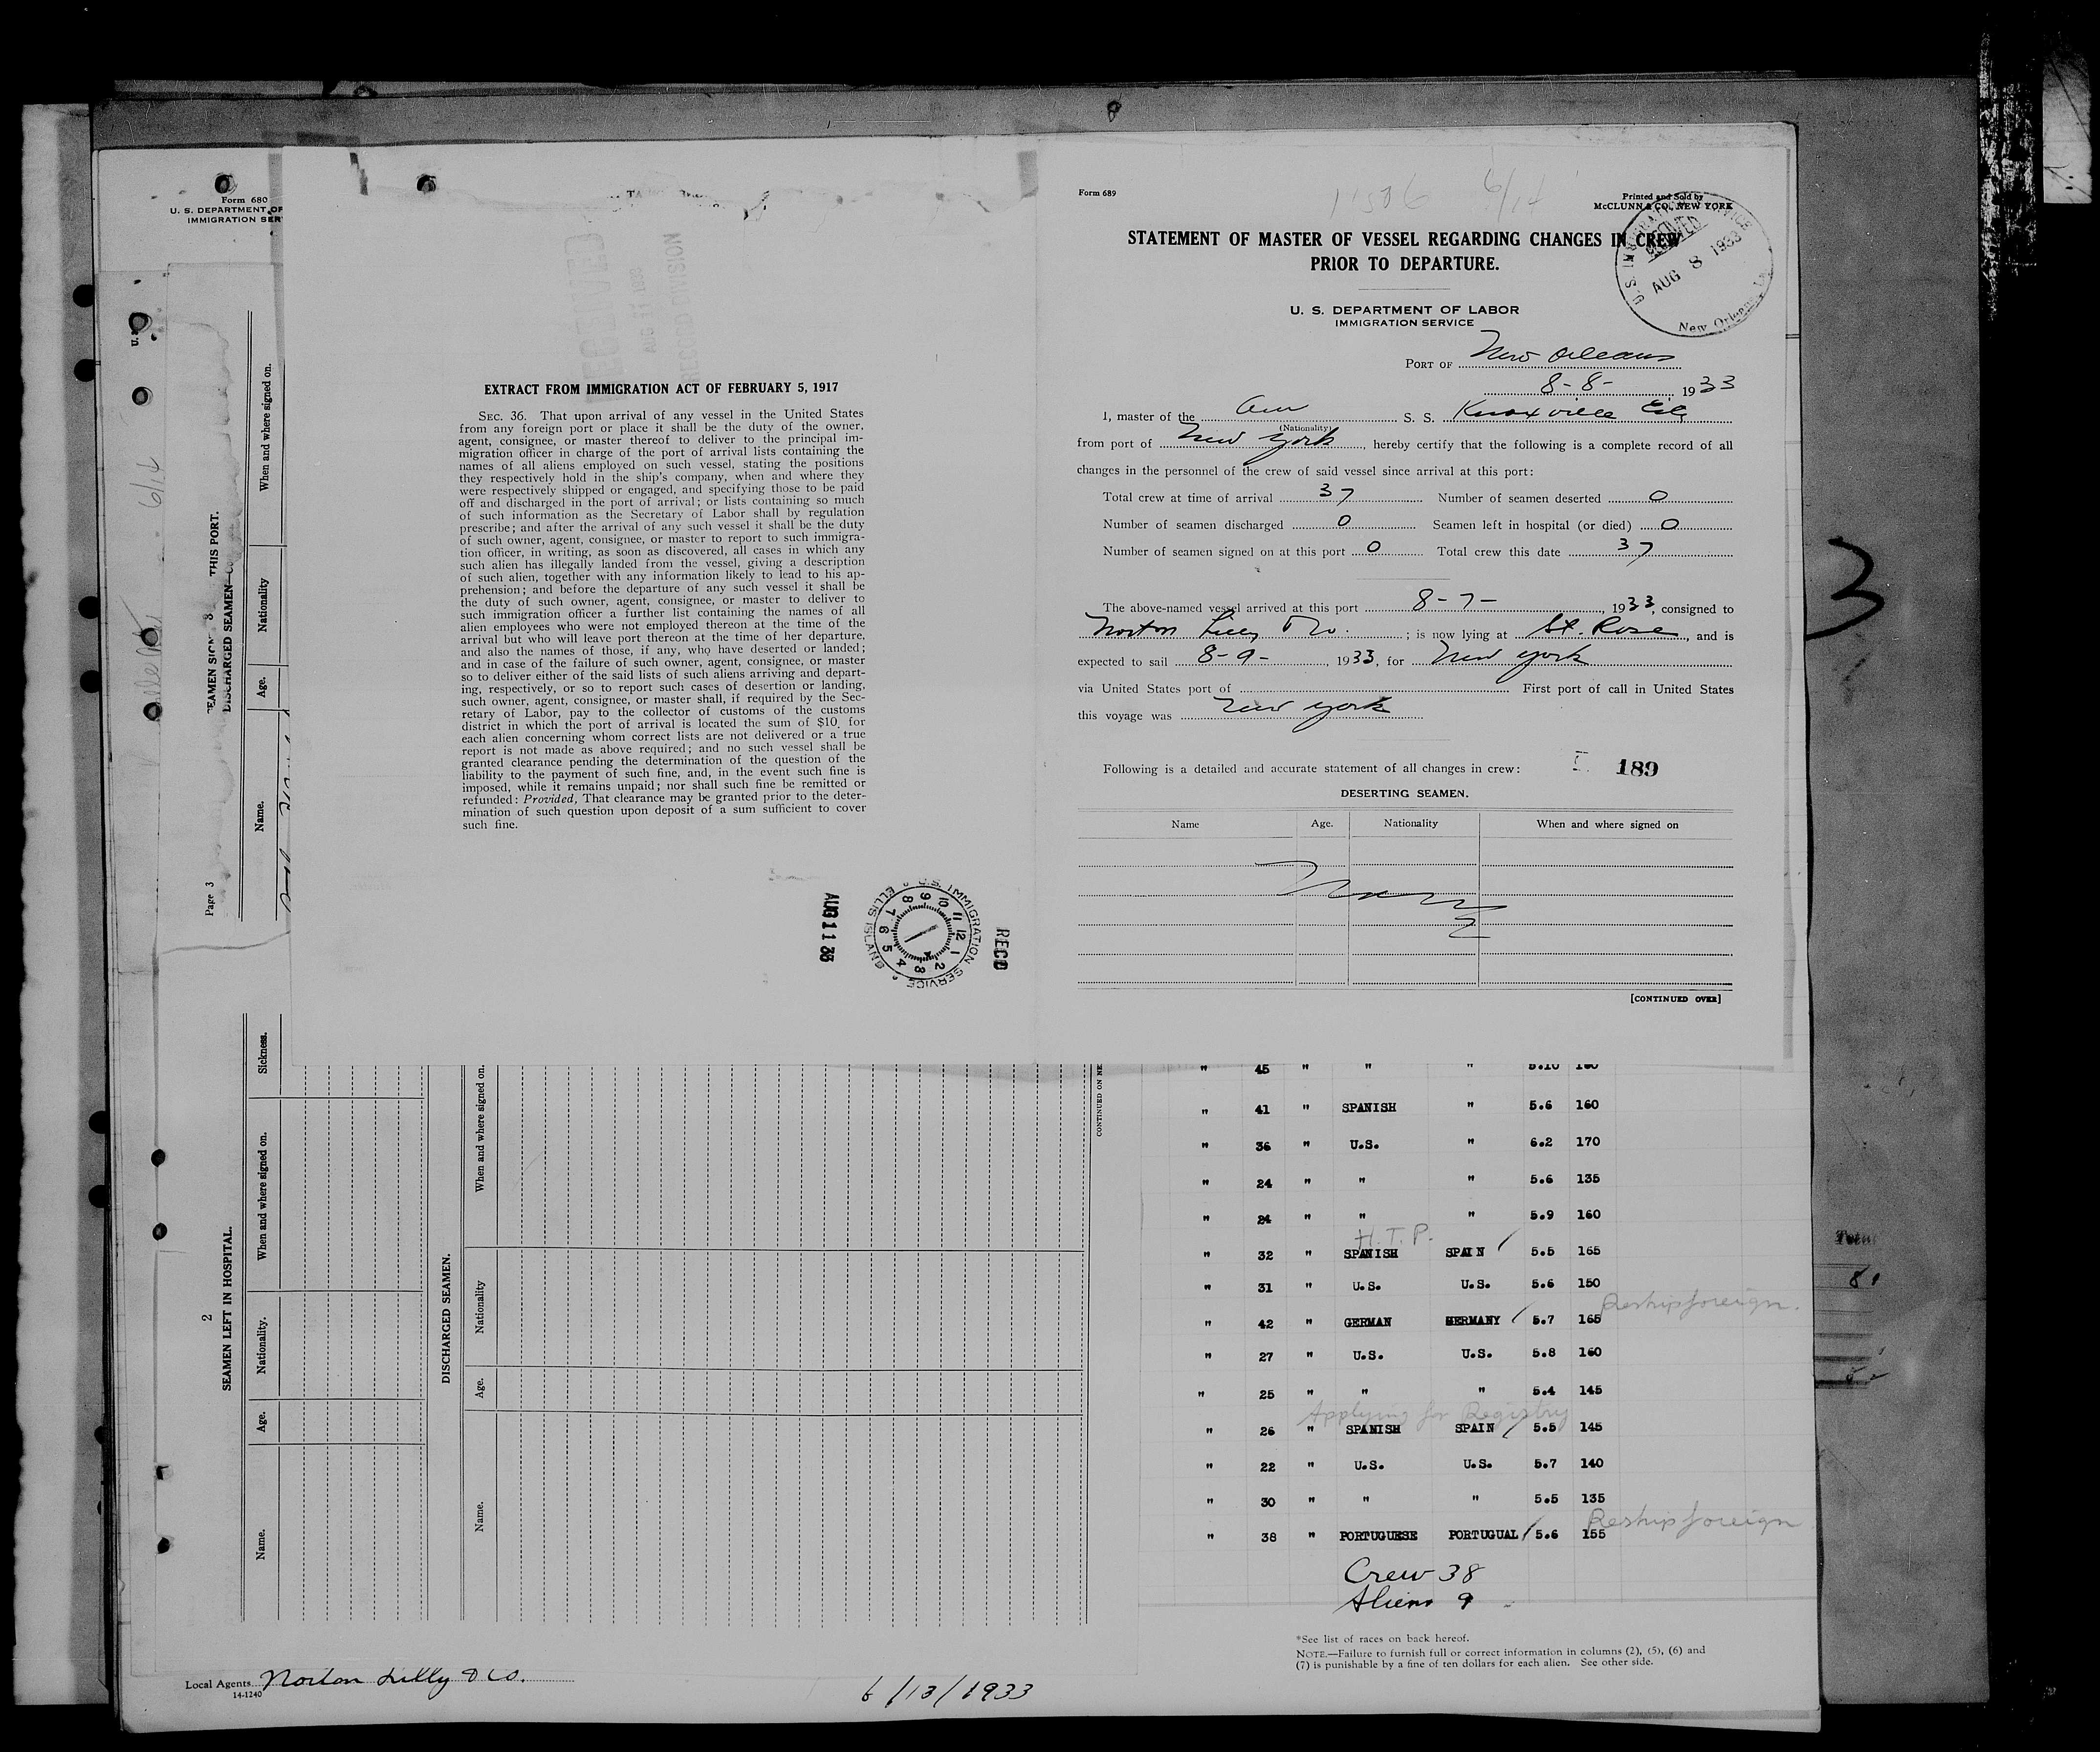 Form 680
U. S. DEPARTMENT OF
IMMIGRATION SER
6/14
SEAMEN SIGN THIS PORT.
DISCHARGED SEAMEN—
When and where signed on.
Nationality
Age.
Name.
Page 3
RECEIVED
AUG 11 1933
RECORD DIVISION
EXTRACT FROM IMMIGRATION ACT OF FEBRUARY 5, 1917
SEC. 36. That upon arrival of any vessel in the United States
from any foreign port or place it shall be the duty of the owner,
agent, consignee, or master thereof to deliver to the principal im-
migration officer in charge of the port of arrival lists containing the
names of all aliens employed on such vessel, stating the positions
they respectively hold in the ship's company, when and where they
were respectively shipped or engaged, and specifying those to be paid
off and discharged in the port of arrival; or lists containing so much
of such information as the Secretary of Labor shall by regulation
prescribe; and after the arrival of any such vessel it shall be the duty
of such owner, agent, consignee, or master to report to such immigra-
tion officer, in writing, as soon as discovered, all cases in which any
such alien has illegally landed from the vessel, giving a description
of such alien, together with any information likely to lead to his ap-
prehension; and before the departure of any such vessel it shall be
the duty of such owner, agent, consignee, or master to deliver to
such immigration officer a further list containing the names of all
alien employees who were not employed thereon at the time of the
arrival but who will leave port thereon at the time of her departure,
and also the names of those, if any, who have deserted or landed;
and in case of the failure of such owner, agent, consignee, or master
so to deliver either of the said lists of such aliens arriving and depart-
ing, respectively, or so to report such cases of desertion or landing,
such owner, agent, consignee, or master shall, if required by the Sec-
retary of Labor, pay to the collector of customs of the customs
district in which the port of arrival is located the sum of $10. for
each alien concerning whom correct lists are not delivered or a true
report is not made as above required; and no such vessel shall be
granted clearance pending the determination of the question of the
liability to the payment of such fine, and, in the event such fine is
imposed, while it remains unpaid; nor shall such fine be remitted or
refunded: Provided, That clearance may be granted prior to the deter-
mination of such question upon deposit of a sum sufficient to cover
such fine.
AUG 11 33
U.S. IMMIGRATION SERVICE ELLIS ISLAND
1 2 3 4 5 6 7 8 9 10 11 12
RECD
Form 689
11506 6/14
Printed and Sold by
McCLUNN & CO., NEW YORK
STATEMENT OF MASTER OF VESSEL REGARDING CHANGES IN CREW
PRIOR TO DEPARTURE.
RECEIVED
AUG 8 1933
New Orleans, La.
U. S. DEPARTMENT OF LABOR
IMMIGRATION SERVICE
PORT OF New Orleans
8-8- 1933
I, master of the Am S. S. Knoxville City
(Nationality)
from port of New York, hereby certify that the following is a complete record of all
changes in the personnel of the crew of said vessel since arrival at this port:
Total crew at time of arrival 37 Number of seamen deserted 0
Number of seamen discharged 0 Seamen left in hospital (or died) 0
Number of seamen signed on at this port 0 Total crew this date 37
The above-named vessel arrived at this port 8-7-, 1933, consigned to
Norton Lilly & Co. ; is now lying at St. Rose, and is
expected to sail 8-9-, 1933, for New York
via United States port of First port of call in United States
this voyage was New York
Following is a detailed and accurate statement of all changes in crew: 189
DESERTING SEAMEN.
Name Age. Nationality When and where signed on
[CONTINUED OVER]
3
2
SEAMEN LEFT IN HOSPITAL.
Name. Age. Nationality. When and where signed on. Sickness.
DISCHARGED SEAMEN.
Name. Age. Nationality When and where signed on.
CONTINUED ON NE
" 45 " " " 5.10 160
" 41 " SPANISH " 5.6 160
" 36 " U.S. " 6.2 170
" 24 " " " 5.6 135
" 24 " " " 5.9 160
H.T.P.
" 32 " SPANISH SPAIN 5.5 165
" 31 " U.S. U.S. 5.6 150
Reship foreign.
" 42 " GERMAN GERMANY 5.7 165
" 27 " U.S. U.S. 5.8 160
" 25 " " " 5.4 145
Applying for Registry
" 26 " SPANISH SPAIN 5.5 145
" 22 " U.S. U.S. 5.7 140
" 30 " " " 5.5 135
Reship foreign
" 38 " PORTUGUESE PORTUGUAL 5.6 155
Crew 38
Aliens 9
*See list of races on back hereof.
NOTE.—Failure to furnish full or correct information in columns (2), (5), (6) and
(7) is punishable by a fine of ten dollars for each alien. See other side.
Local Agents Norton Lilly & Co.
14-1240
6/13/1933